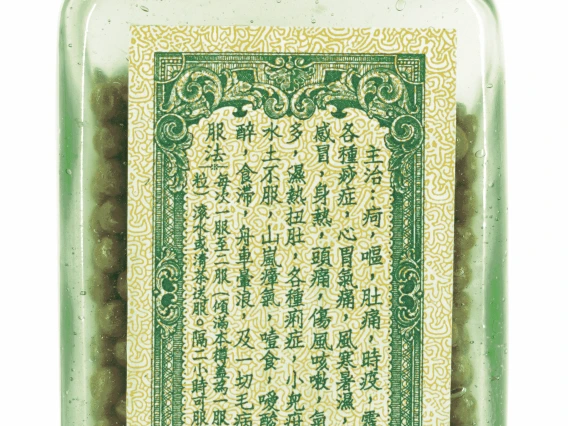 主治：疴，嘔，肚痛，時疫，霍
各種痧症，心胃氣痛，風寒暑濕，
感冒，身熱，頭痛，傷風咳嗽，氣
多，濕熱扭肚，各種痢症，小兒疳
水土不服，山嵐瘴氣，噎食，嘔酸
醉，食滯，舟車暈浪，及一切毛病
服法（每次一服至二服（傾滿本樽蓋爲一服
粒）滾水或清茶送服。隔二小時可服